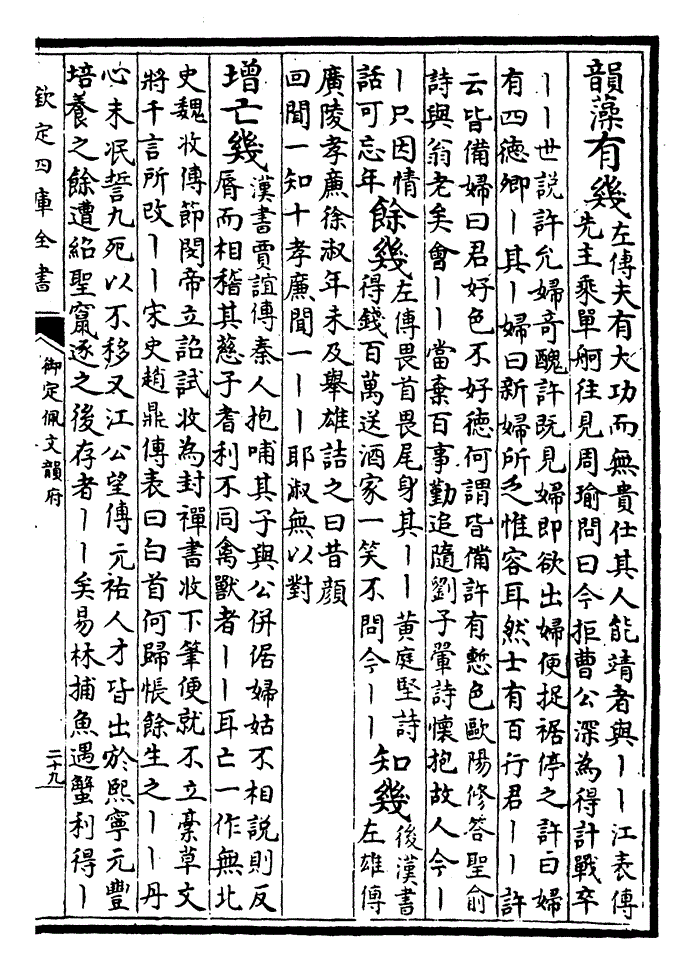 韻藻有幾左傳夫有大功而無貴仕其人能靖者與丨丨江表傳
先主乘單舸往見周瑜問曰今拒曹公深為得計戰卒
丨丨世說許允婦奇醜許既見婦即欲出婦便捉裾停之許曰婦
有四德卿丨其丨婦曰新婦所乏惟容耳然士有百行君丨丨許
云皆備婦曰君好色不好德何謂皆備許有慙色歐陽修答聖俞
詩與翁老矣會丨丨當棄百事勤追隨劉子翬詩懷抱故人今丨
丨只因情
話可忘年
餘幾左傳畏首畏尾身其丨丨黃庭堅詩
得錢百萬送酒家一笑不問今丨丨
知幾後漢書
左雄傳
廣陵孝廉徐淑年未及舉雄詰之曰昔顏
回聞一知十孝廉聞一丨丨耶淑無以對
增亡幾漢書賈誼傳秦人抱哺其子與公併倨婦姑不相說則反
脣而相稽其慈子耆利不同禽獸者丨丨耳亡一作無北
史魏收傳節閔帝立詔試收為封禪書收下筆便就不立藁草文
將千言所改丨丨宋史趙鼎傳表曰白首何歸悵餘生之丨丨丹
心未泯誓九死以不移又江公望傳元祐人才皆出於熙寧元豐
培養之餘遭紹聖竄逐之後存者丨丨矣易林捕魚遇蟹利得丨
欽定四庫全書
御定佩文韻府
二十九